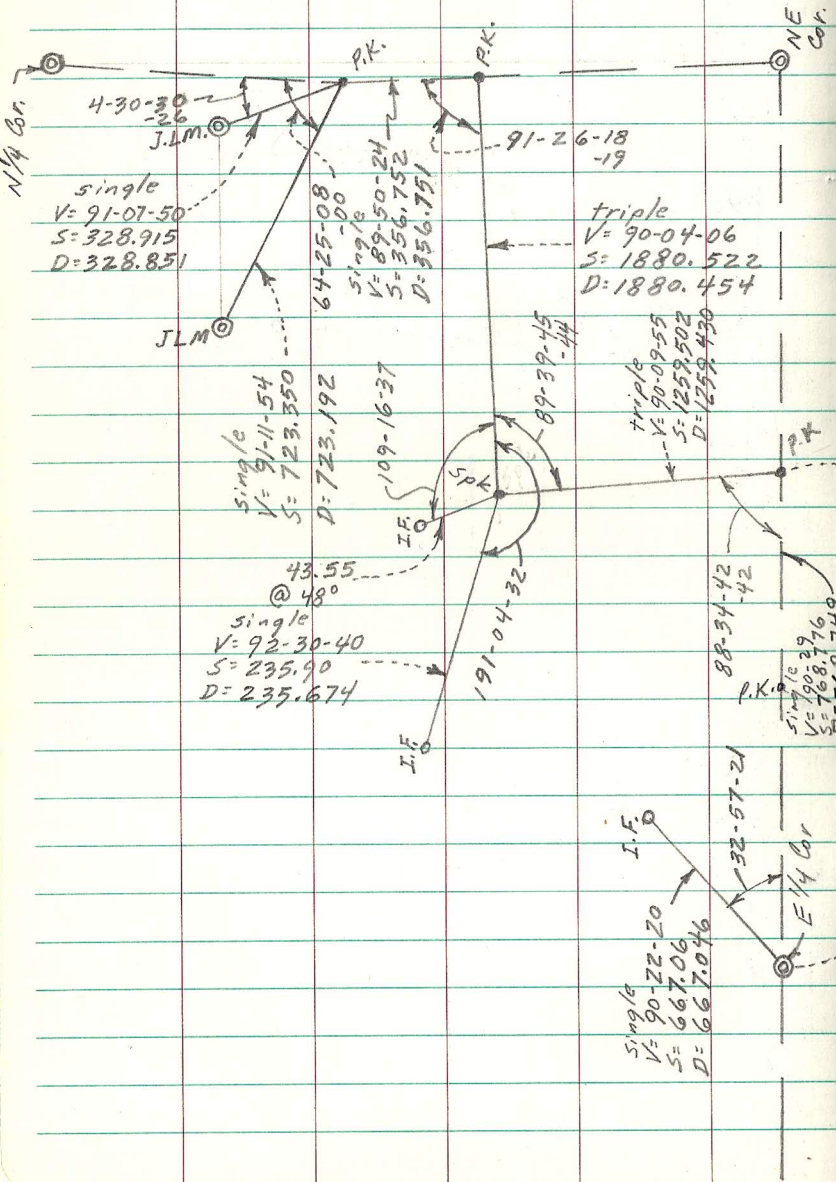 N 1/4 Cor.
P.K.
P.K.
NE
Cor.
4-30-30
-26
J.L.M.
single
V= 91-07-50
S= 328.915
D= 328.851
64-25-08
-00
single
V= 89-50-24
S= 356.752
D= 356.751
91-26-18
-19
triple
V= 90-04-06
S= 1880.522
D= 1880.454
JLM
single
V= 91-11-54
S= 723.350
D= 723.192
109-16-37
89-39-45
-44
triple
V= 90-09-55
S= 1259.502
D= 1259.430
Spk
P.K
I.F.
43.55
@ 48°
single
V= 92-30-40
S= 235.90
D= 235.674
191-04-32
88-34-42
-42
P.K.
single
V= 90-29
S= 768.776
I.F.
I.F.
32-57-21
E 1/4 Cor
single
V= 90-22-20
S= 667.06
D= 667.046